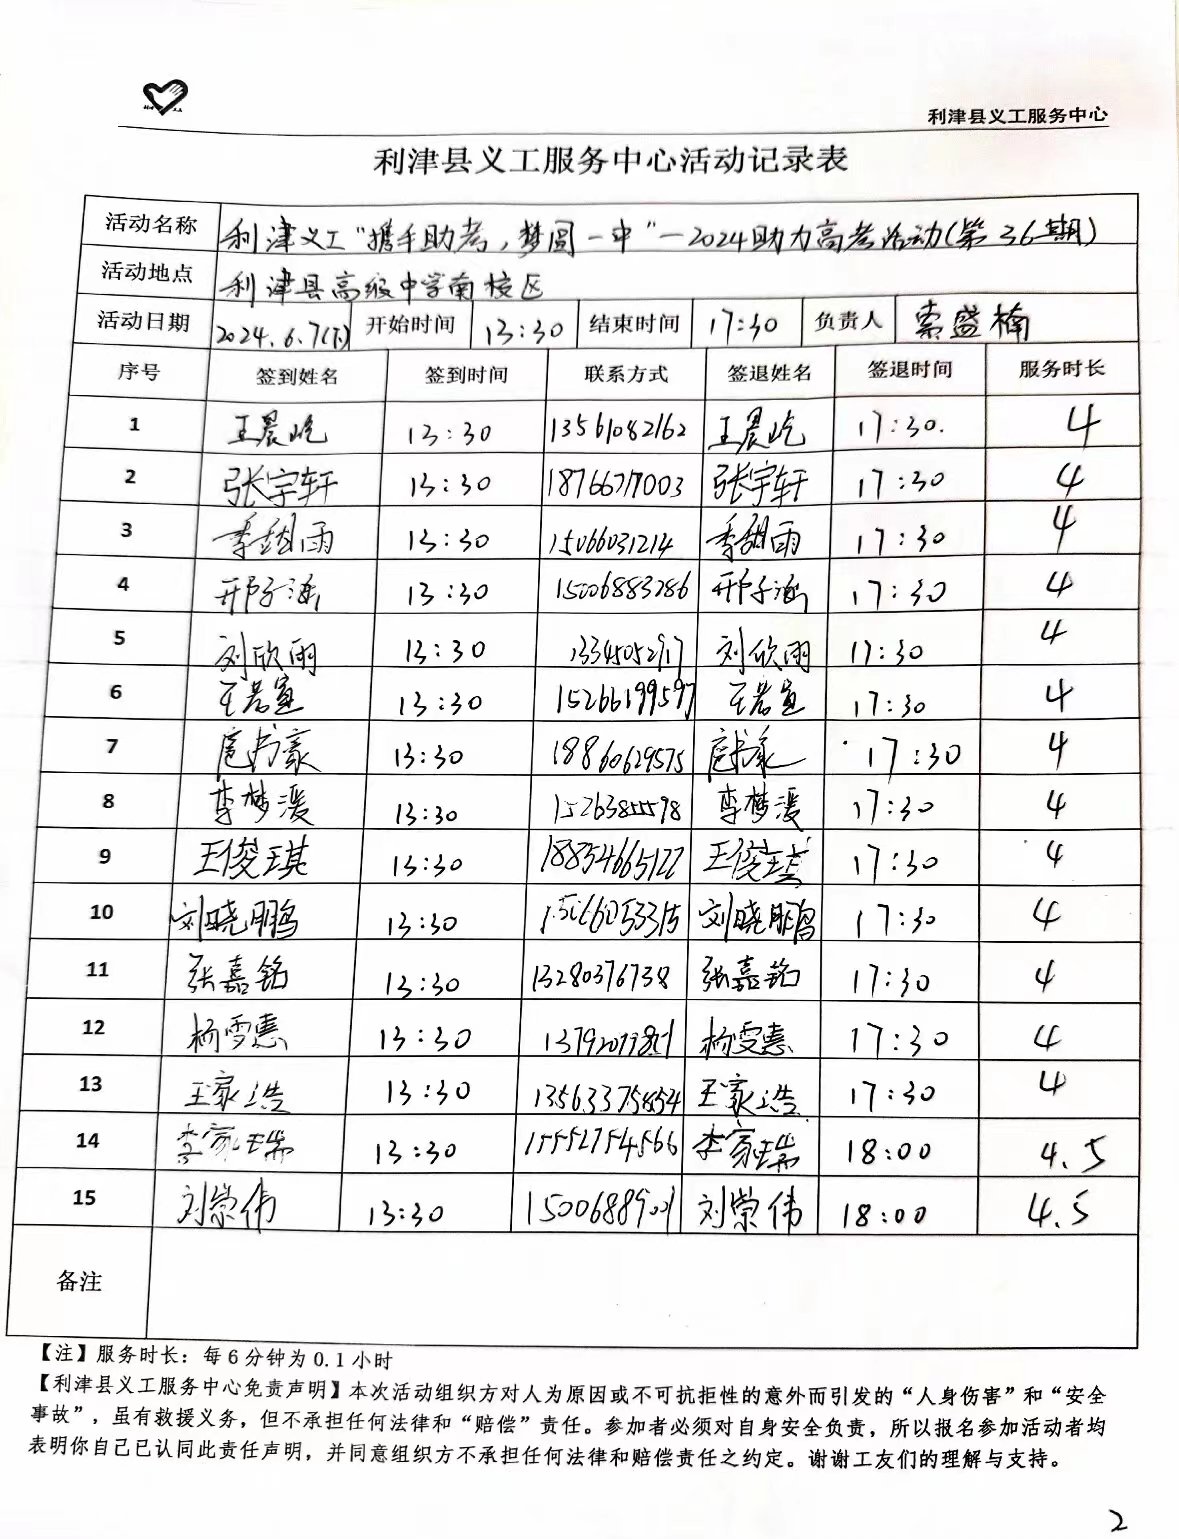 利津县义工服务中心
利津县义工服务中心活动记录表
活动名称 利津义工“携手助考，梦圆一中”—2024助力高考活动(第36期)
活动地点 利津县高级中学南校区
活动日期 2024.6.7(下) 开始时间 13:30 结束时间 17:30 负责人 索盛楠
序号 签到姓名 签到时间 联系方式 签退姓名 签退时间 服务时长
1 王晨屹 13:30 13561082162 王晨屹 17:30. 4
2 张宇轩 13:30 18766717003 张宇轩 17:30 4
3 季甜雨 13:30 15066031214 季甜雨 17:30 4
4 邢子涵 13:30 15006883286 邢子涵 17:30 4
5 刘欣雨 13:30 13345052917 刘欣雨 17:30 4
6 王若宣 13:30 15266199597 王若宣 17:30 4
7 扈书豪 13:30 18860629575 扈书豪 17:30 4
8 李梦湲 13:30 15263855598 李梦湲 17:30 4
9 王俊琪 13:30 18854665122 王俊琪 17:30 4
10 刘晓鹏 13:30 15066053315 刘晓鹏 17:30 4
11 张嘉铭 13:30 13280376738 张嘉铭 17:30 4
12 杨雯惠 13:30 杨雯惠 17:30 4
13 王家浩 13:30 13563375854 王家浩 17:30 4
14 李家瑞 13:30 15552754566 李家瑞 18:00 4.5
15 刘崇伟 13:30 刘崇伟 18:00 4.5
备注
【注】服务时长：每6分钟为0.1小时
【利津县义工服务中心免责声明】本次活动组织方对人为原因或不可抗拒性的意外而引发的“人身伤害”和“安全
事故”，虽有救援义务，但不承担任何法律和“赔偿”责任。参加者必须对自身安全负责，所以报名参加活动者均
表明你自己已认同此责任声明，并同意组织方不承担任何法律和赔偿责任之约定。谢谢工友们的理解与支持。
2